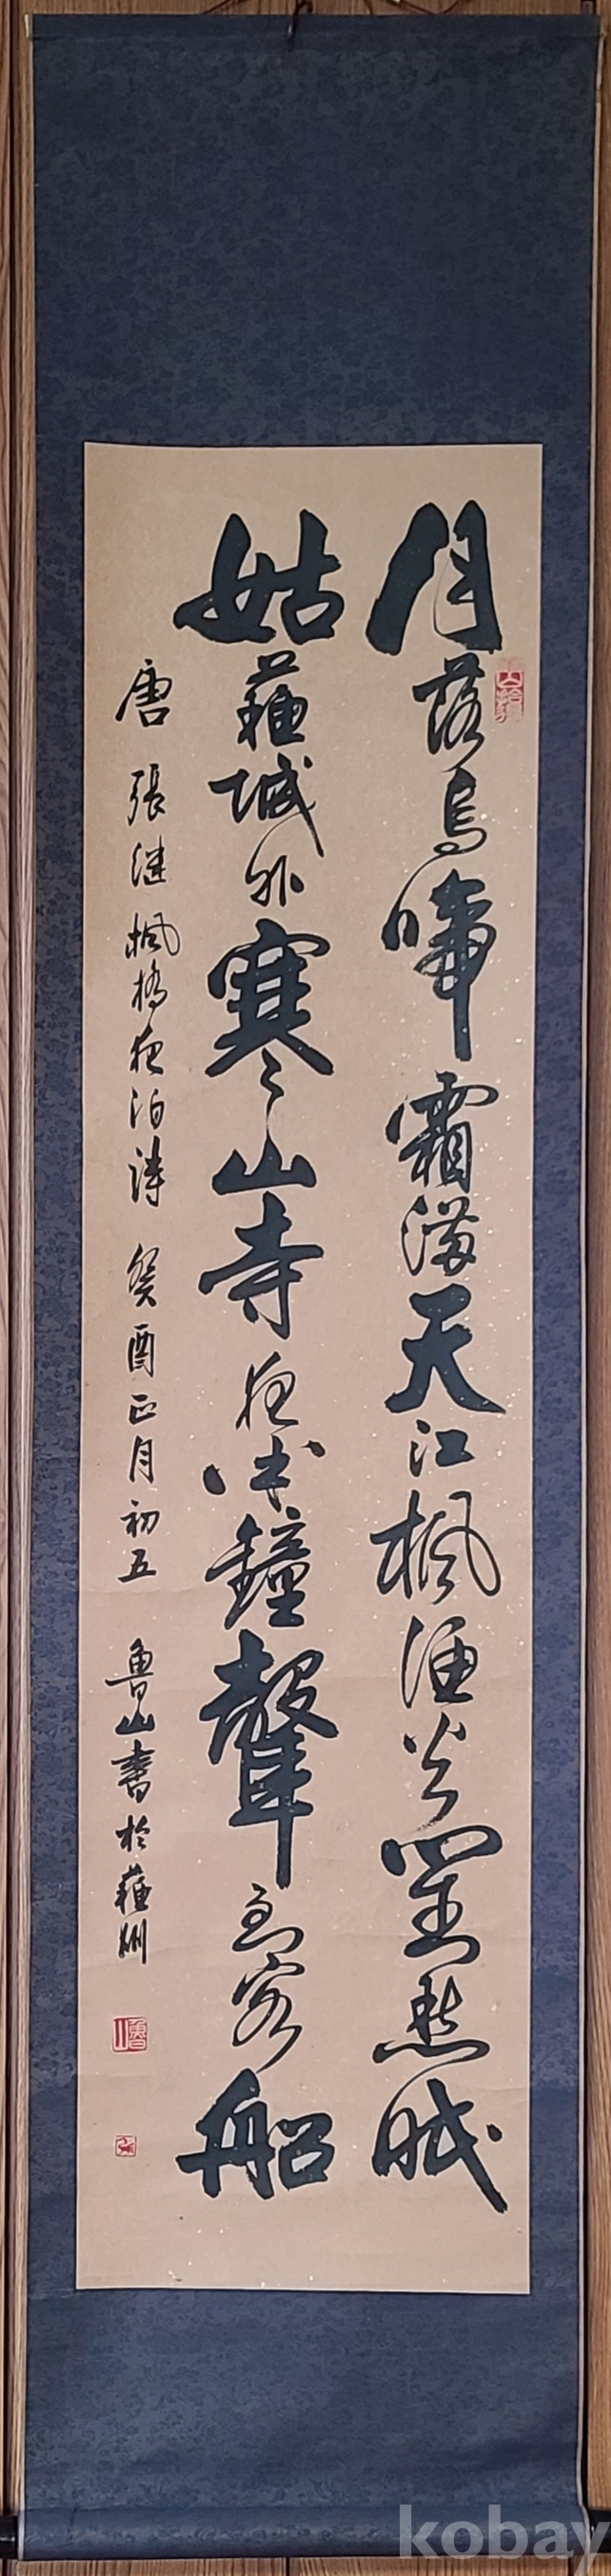 月落烏啼霜滿天江楓漁火對愁眠
姑蘇城外寒山寺夜半鐘聲到客船
唐 張继楓橋夜泊詩 癸酉正月初五 魯山書於蘇州
魯山
kobay